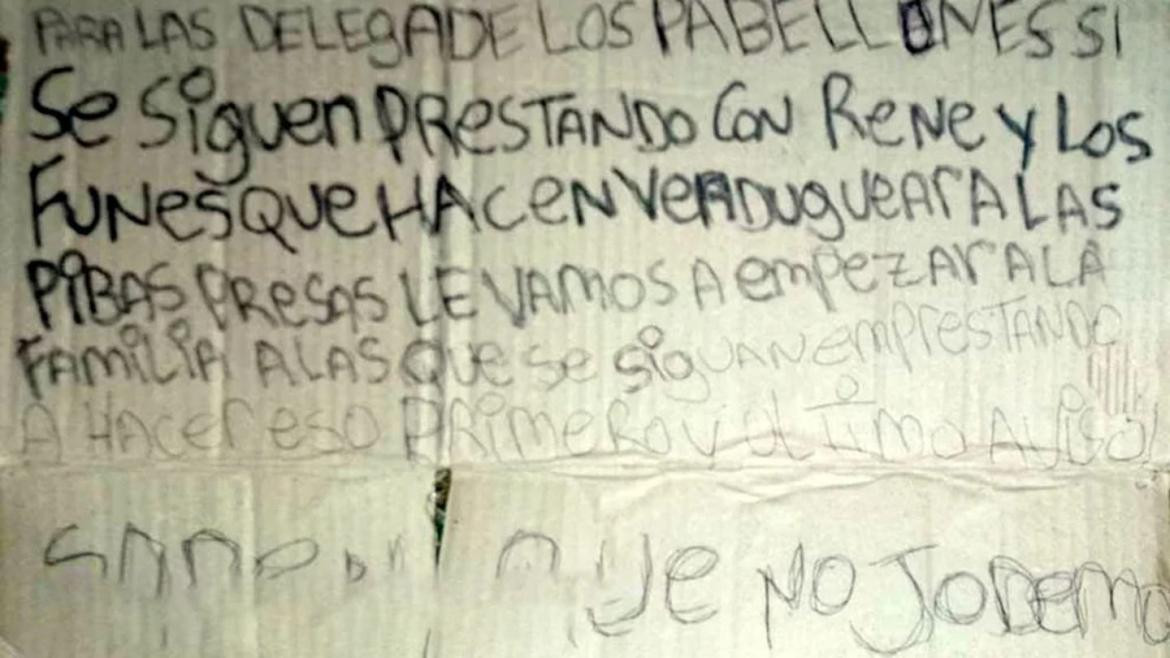 PARA LAS DELEGADE LOS PABELLONES SI
Se Siguen PRESTANDO CON RENE y LOS
FUNES QUE HACEN VERDUGUEAR A LAS
PIBAS PRESAS LE VAMOS A EMPEZAR A LA
FAMILIA A LAS QUE SE SIGUAN EMPRESTANDO
A HACER ESO PRIMERO Y ULTIMO AVISO!
QUE NO JODEMO